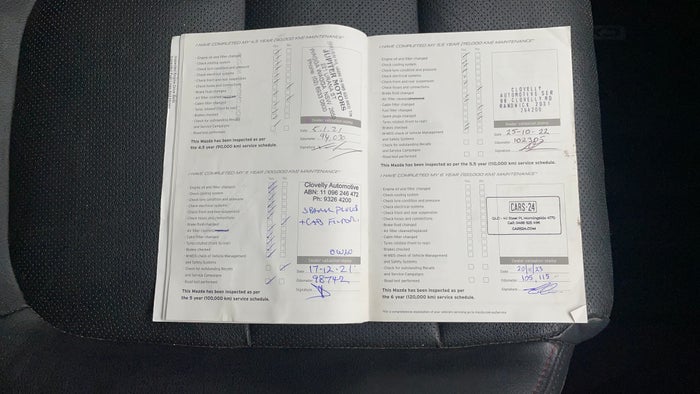 I HAVE COMPLETED MY 4.5 YEAR (90,000 KM) MAINTENANCE*
Engine oil and filter changed
Check cooling system
Check tyre condition and pressure
Check electrical systems
Check front and rear suspension
Check hoses and connections
Brake fluid changed
Air filter cleaned
Cabin filter changed
Tyres rotated (front to rear)
Brakes checked
Check for outstanding Recalls
and Service Campaigns
Road test performed
This Mazda has been inspected as per
the 4.5 year (90,000 km) service schedule.
JUPITER MOTORS
WAGGA WAGGA NSW
Dealer validation stamp
Date
Odometer 94,030
Signature
I HAVE COMPLETED MY 5 YEAR (100,000 KM) MAINTENANCE*
Engine oil and filter changed
Check cooling system
Check tyre condition and pressure
Check electrical systems
Check front and rear suspension
Check hoses and connections
Brake fluid changed
Air filter cleaned
Cabin filter changed
Tyres rotated (front to rear)
Brakes checked
M-MDS check of Vehicle Management
and Safety Systems
Check for outstanding Recalls
and Service Campaigns
Road test performed
This Mazda has been inspected as per
the 5 year (100,000 km) service schedule.
Clovelly Automotive
ABN: 11 096 246 472
Ph: 9326 4200
SPARK PLUGS
Dealer validation stamp
Date 17-12-21
Odometer 98742
Signature
I HAVE COMPLETED MY 5.5 YEAR (110,000 KM) MAINTENANCE*
Engine oil and filter changed
Check cooling system
Check tyre condition and pressure
Check electrical systems
Check front and rear suspension
Check hoses and connections
Brake fluid changed
Air filter cleaned
Cabin filter changed
Fuel filter changed
Spark plugs changed
Tyres rotated (front to rear)
Brakes checked
M-MDS check of Vehicle Management
and Safety Systems
Check for outstanding Recalls
and Service Campaigns
Road test performed
This Mazda has been inspected as per the 5.5 year (110,000 km) service schedule.
CLOVELLY
AUTOMOTIVE SER
88 CLOVELLY RD
RANDWICK 2031
Dealer validation stamp
Date 25-10-22
Odometer 102305
Signature
I HAVE COMPLETED MY 6 YEAR (120,000 KM) MAINTENANCE*
Engine oil and filter changed
Check cooling system
Check tyre condition and pressure
Check electrical systems
Check front and rear suspension
Check hoses and connections
Brake fluid changed
Air filter cleaned/replaced
Cabin filter changed
Tyres rotated (front to rear)
Brakes checked
M-MDS check of Vehicle Management
and Safety Systems
Check for outstanding Recalls
and Service Campaigns
Road test performed
This Mazda has been inspected as per
the 6 year (120,000 km) service schedule.
CARS·24
CARS24.COM
Dealer validation stamp
Date
Odometer 105,115
Signature